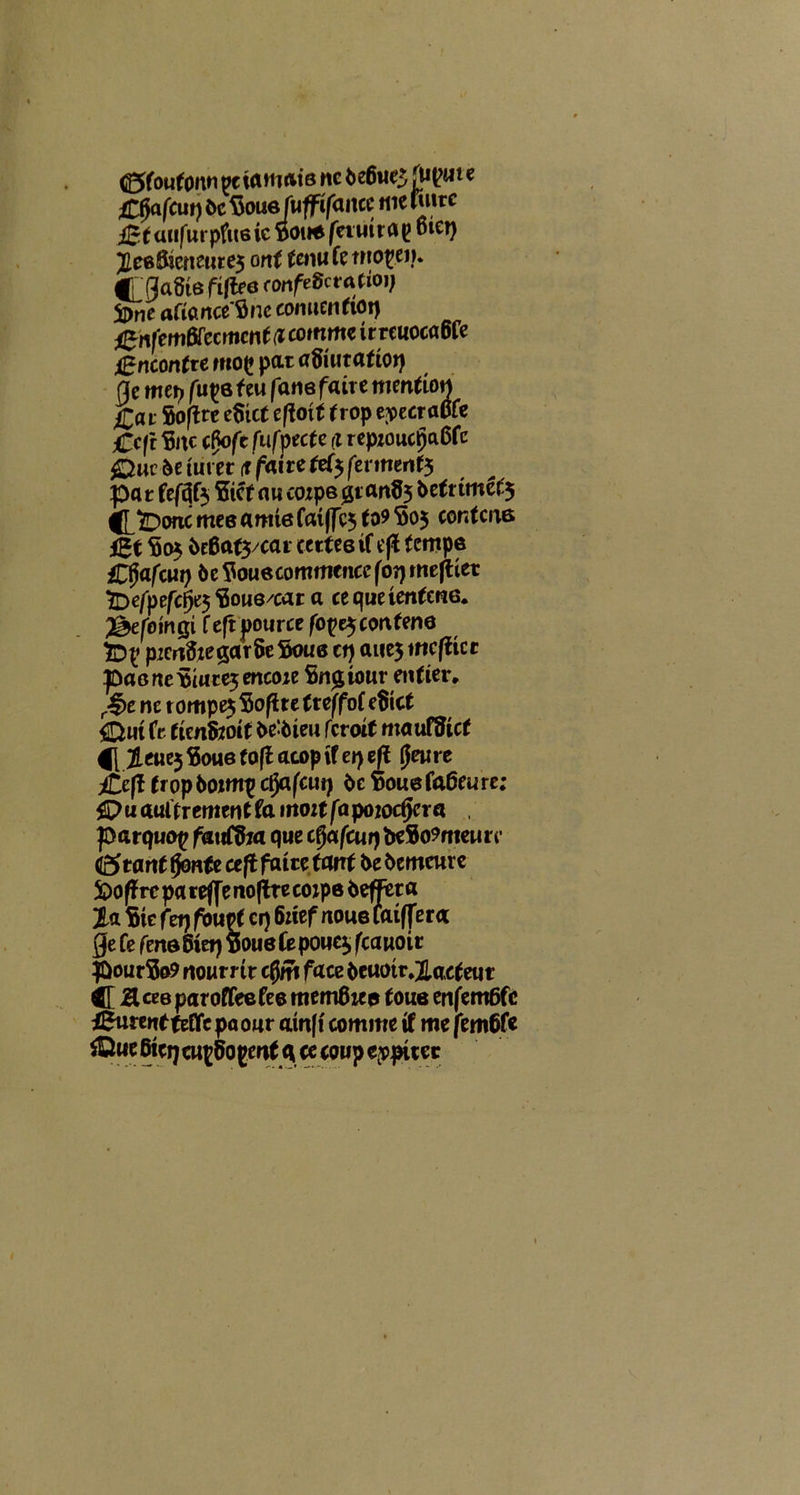 Gloutonnye iamais ne debuez suyure
Chascun de vous suffisance me liure
Et au surplus ie vous seruiray bien
Les vieneurez ont tenu le moyen.
¶ Jadis fistes confederation
Une aliance vne conuention
Ensemblecment & comme irreuocable
Encontre moy par adiuration
Je men suys teu sans faire mention
Car vostre edict estoit trop execrable
Cest vne chose suspecte & reprouchable
Que de iurer & faire telz sermentz
Par lesqlz vict au corps grandz detrimẽtz
¶ Donc mes amis laissez to⁹ voz contens
Et voz debatz/car certes il est temps
Chascun de vous commence son mestier
Despeschez vous/car a ce que ientens.
Besoing il est pource soyez contens
Dy prendre garde vous en auez mestier
Pas ne viurez encore vng iour entier.
Se ne rompez vostre tressol edict
Qui se tiendroit de dieu seroit mauldict
¶ Leuez vous tost acop il en est heure
Cest trop dormy chascun de vous labeure:
Ou aultrement la mort saporochera
Parquoy fauldra que chascun de vo⁹ meure
Grant honte cest faire tant de demeure
Vostre paresse nostre corps deffera
La vie sen fouyt en brief nous laissera
Je le sens bien vous le pouez scauoir
Pour vo⁹ nourrir chm̃ face deuoir. Lacteur
¶ A ces parolles les membres tous ensemble
Eurent telle paour ainsi comme il me semble
Que bien cuydoyent q̃ ce coup expirer